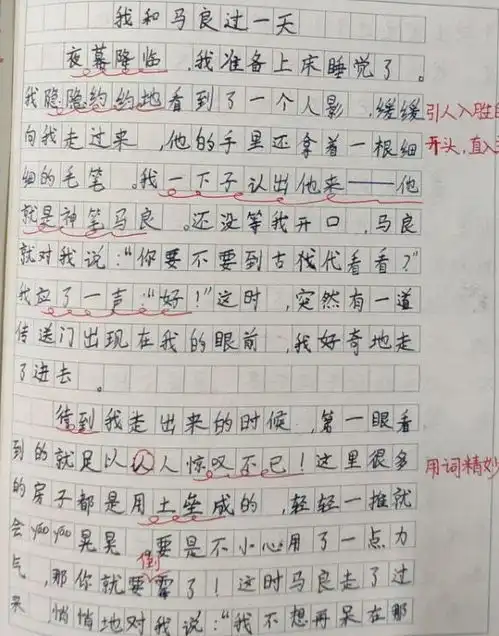 我和马良过一天
夜幕降临,我准备上床睡觉了。
我隐隐约约地看到了一个人影,缓缓
引人入胜
向我走过来,他的手里还拿着一根细
开头,直入
细的毛笔。我一下子认出他来——他
就是神笔马良。还没等我开口,马良
就对我说:“你要不要到古代看看?”
我应了一声“好!”这时,突然有一道
传送门出现在我的眼前,我好奇地走
了进去。
待到我走出来的时候,第一眼看
到的就足以令人惊叹不已!这里很多
用词精妙
的房子都是用土垒成的,轻轻一推就
会yáo yáo晃晃,要是不小心用了一点力
倒
气,那你就要霉了!这时马良走了过
来,悄悄地对我说:“我不想再呆在那